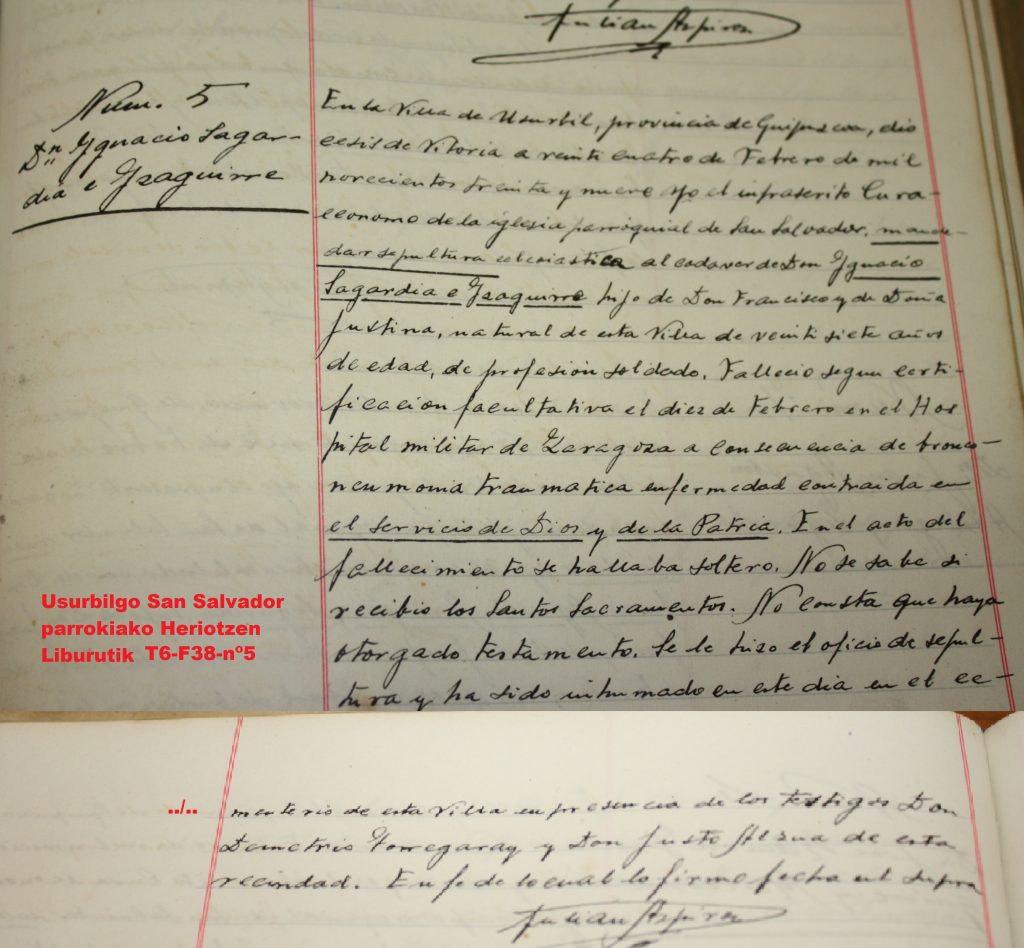 Julian Azpiroz
Num. 5
Dn Ygnacio Sagar-
dia e Yzaguirre
En la Villa de Usurbil, provincia de Guipuzcoa, dio
cesis de Vitoria a veinti cuatro de Febrero de mil
novecientos treinta y nueve yo el infrascrito Cura-
economo de la iglesia parroquial de San Salvador, mande-
dar sepultura eclesiastica al cadaver de Don Ygnacio
Sagardia e Yzaguirre hijo de Don Francisco y de Doña
Justina, natural de esta Villa de veinti siete años
de edad, de profesión soldado. Fallecio segun certi-
ficacion facultativa el diez de Febrero en el Hos
pital militar de Zaragoza a consecuencia de bronco-
neumonia traumatica enfermedad contraida en
el servicio de Dios y de la Patria. En el acto del
fallecimiento se hallaba soltero. No se sabe si
recibio los Santos Sacramentos. No consta que haya
otorgado testamento. Se le hizo el oficio de sepul-
tura y ha sido inhumado en este dia en el ce-
Usurbilgo San Salvador
parrokiako Heriotzen
Liburutik T6-F38-nº5
../..
menterio de esta Villa en presencia de los testigos Don
Demetrio Yorregaray y Don Justo Alzua de esta
vecindad. En fe de lo cual lo firmo fecha ut supra
Julian Azpiroz